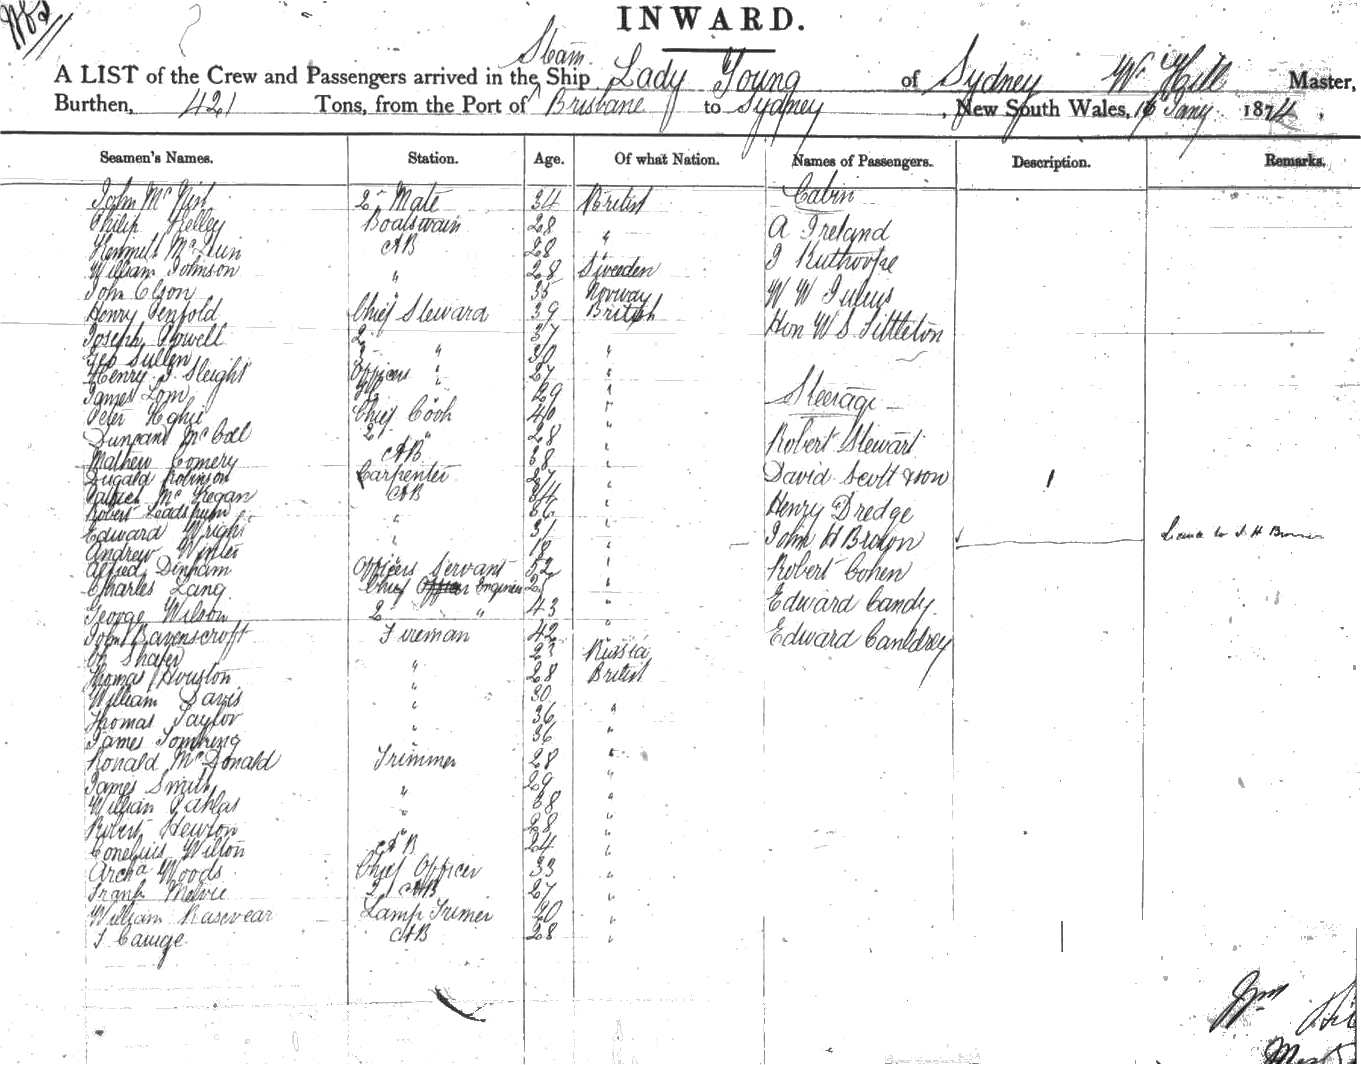 INWARD.
Steam
A LIST of the Crew and Passengers arrived in the Ship Lady Young of Sydney Wm Hill Master,
Burthen, 421 Tons, from the Port of Brisbane to Sydney, New South Wales, 16 Janny 1874,
Seamen's Names. Station. Age. Of what Nation. Names of Passengers. Description. Remarks.
John Mc 2nd Mate 34 British Cabin
Philip Kelley Boatswain 28 "
A Ireland
AB 28
William Johnson " 28 Sweden
J Ruthorpe
John Olson " 35 Norway
W W
Henry Penfold Chief Steward 39 British
Hon W S Littleton
Joseph Powell 2 " 37 "
Geo Sullen 30 "
Henry J Sleight Officers " 27 "
James Lom 29 "
Steerage
Peter Chief Cook 40 "
Duncand McColl 2 " 28 "
Robert Stewart
Mathew Comery AB 38 "
Dugald Robinson Carpenter 27 "
David Scott & son
Patrick McKegan AB 34 "
Robert 36 "
Henry Dredge
Edward Wright " 31 "
John H Brown
Andrew Winter 18 "
Alfred Dinham Officers Servant 52 "
Robert Cohen
Charles Lang Chief Officer Engineer 2 "
George Wilson 2 " 43 "
Edward Candy
John Ravenscroft Fireman 42 "
Edward Cauldrey
Shafer 23 Russia
Thomas Houston " 28 British
William Davis " 30
Thomas Taylor " 36 "
James " 36 "
Ronald McDonald Trimmer 28 "
James Smith 29 "
William Pahlas " 38 "
Robert Hewson " 28 "
Conelius Wilson AB 24 "
Archd Woods Chief Officer 33 "
Frank Melvie 2 AB 27 "
William Rasevear Lamp Trimer 20 "
J Cauge AB 28 "
Wm